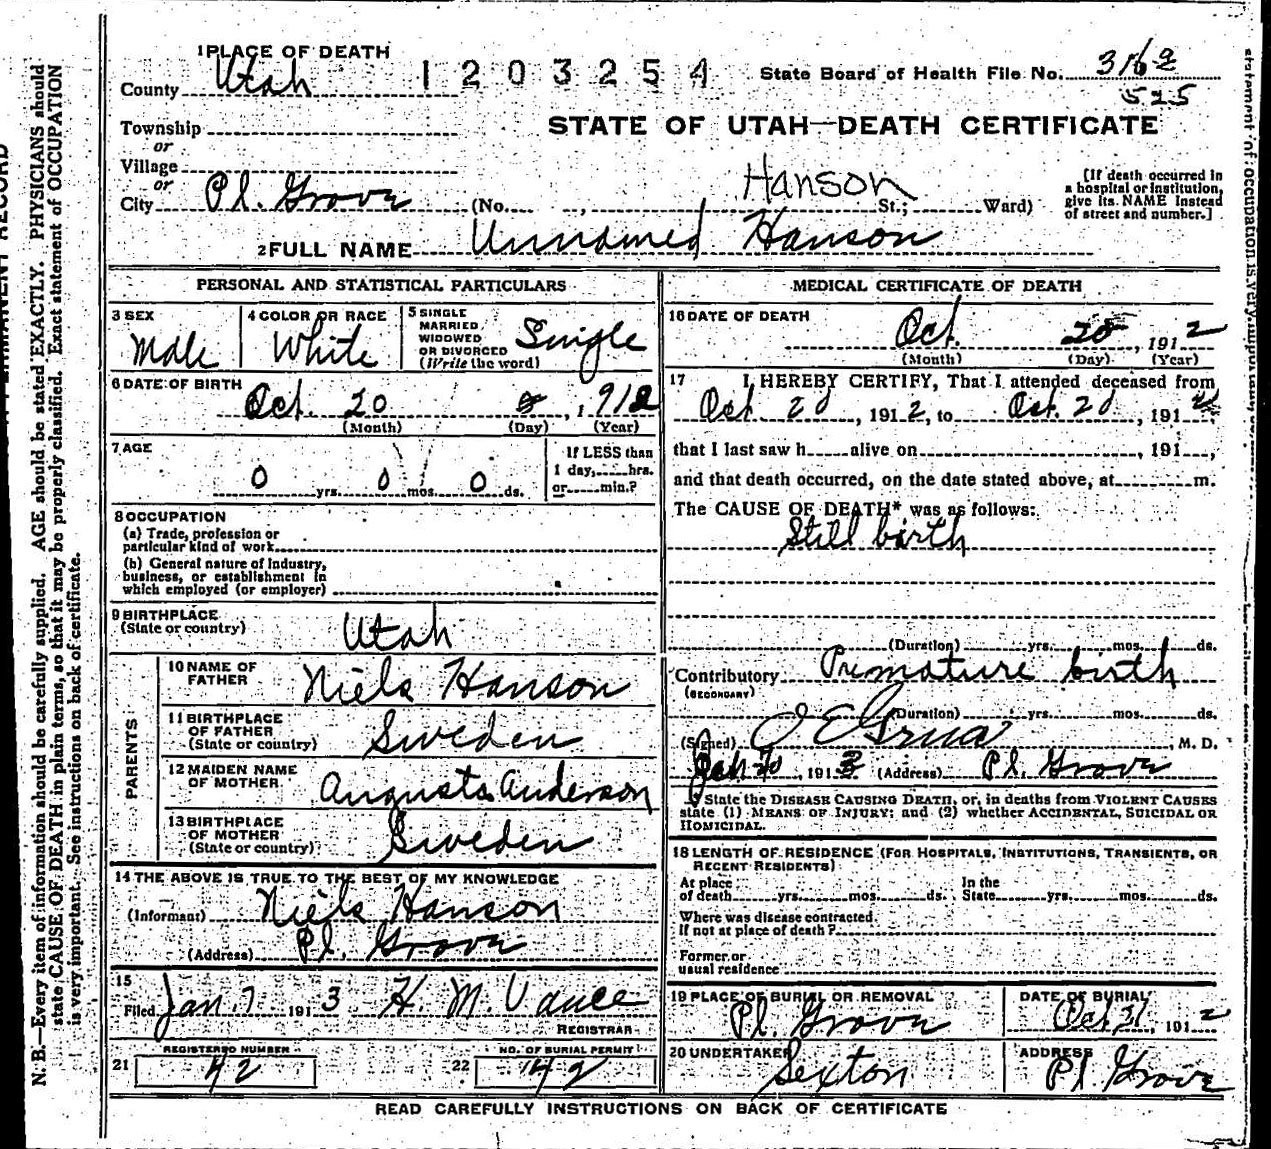 1 PLACE OF DEATH
1203254
State Board of Health File No.
County Utah
525
Township
STATE OF UTAH—DEATH CERTIFICATE
or
Village
or
Hanson
City Pl. Grove (No. , St.; Ward)
[If death occurred in
a hospital or institution,
give its NAME instead
of street and number.]
2 FULL NAME Unnamed Hanson
PERSONAL AND STATISTICAL PARTICULARS
3 SEX
Male
4 COLOR OR RACE
White
5 SINGLE
MARRIED,
WIDOWED
OR DIVORCED
(Write the word)
Single
6 DATE OF BIRTH
Oct. 20 , 1912
(Month) (Day) (Year)
7 AGE
0 yrs. 0 mos. 0 ds.
If LESS than
1 day, hrs.
or min.?
8 OCCUPATION
(a) Trade, profession or
particular kind of work
(b) General nature of industry,
business, or establishment in
which employed (or employer)
9 BIRTHPLACE
(State or country)
Utah
PARENTS
10 NAME OF
FATHER
Niels Hanson
11 BIRTHPLACE
OF FATHER
(State or country)
Sweden
12 MAIDEN NAME
OF MOTHER
Augusta Anderson
13 BIRTHPLACE
OF MOTHER
(State or country)
Sweden
14 THE ABOVE IS TRUE TO THE BEST OF MY KNOWLEDGE
(Informant) Niels Hanson
(Address) Pl. Grove
15
Filed Jan. 7 1913 H. M. Vance
REGISTRAR
21 REGISTERED NUMBER
42
22 NO. OF BURIAL PERMIT
42
MEDICAL CERTIFICATE OF DEATH
16 DATE OF DEATH
Oct. 20 , 1912
(Month) (Day) (Year)
17 I HEREBY CERTIFY, That I attended deceased from
Oct. 20 , 1912, to Oct. 20 , 1912
that I last saw h alive on , 191 ,
and that death occurred, on the date stated above, at m.
The CAUSE OF DEATH* was as follows:
Still birth
(Duration) yrs. mos. ds.
Contributory Premature birth
(SECONDARY)
(Duration) yrs. mos. ds.
(Signed) , M. D.
, 1913 (Address) Pl. Grove
* State the DISEASE CAUSING DEATH, or, in deaths from VIOLENT CAUSES
state (1) MEANS OF INJURY; and (2) whether ACCIDENTAL, SUICIDAL OR
HOMICIDAL.
18 LENGTH OF RESIDENCE (FOR HOSPITALS, INSTITUTIONS, TRANSIENTS, OR
RECENT RESIDENTS)
At place
of death yrs. mos. ds.
In the
State yrs. mos. ds.
Where was disease contracted
if not at place of death?
Former or
usual residence
19 PLACE OF BURIAL OR REMOVAL
Pl. Grove
DATE OF BURIAL
Oct 21, 1912
20 UNDERTAKER
Sexton
ADDRESS
Pl. Grove
READ CAREFULLY INSTRUCTIONS ON BACK OF CERTIFICATE
PERMANENT RECORD
N. B.—Every item of information should be carefully supplied. AGE should be stated EXACTLY. PHYSICIANS should
state CAUSE OF DEATH in plain terms, so that it may be properly classified. Exact statement of OCCUPATION
is very important. See instructions on back of certificate.
statement of OCCUPATION is very important.